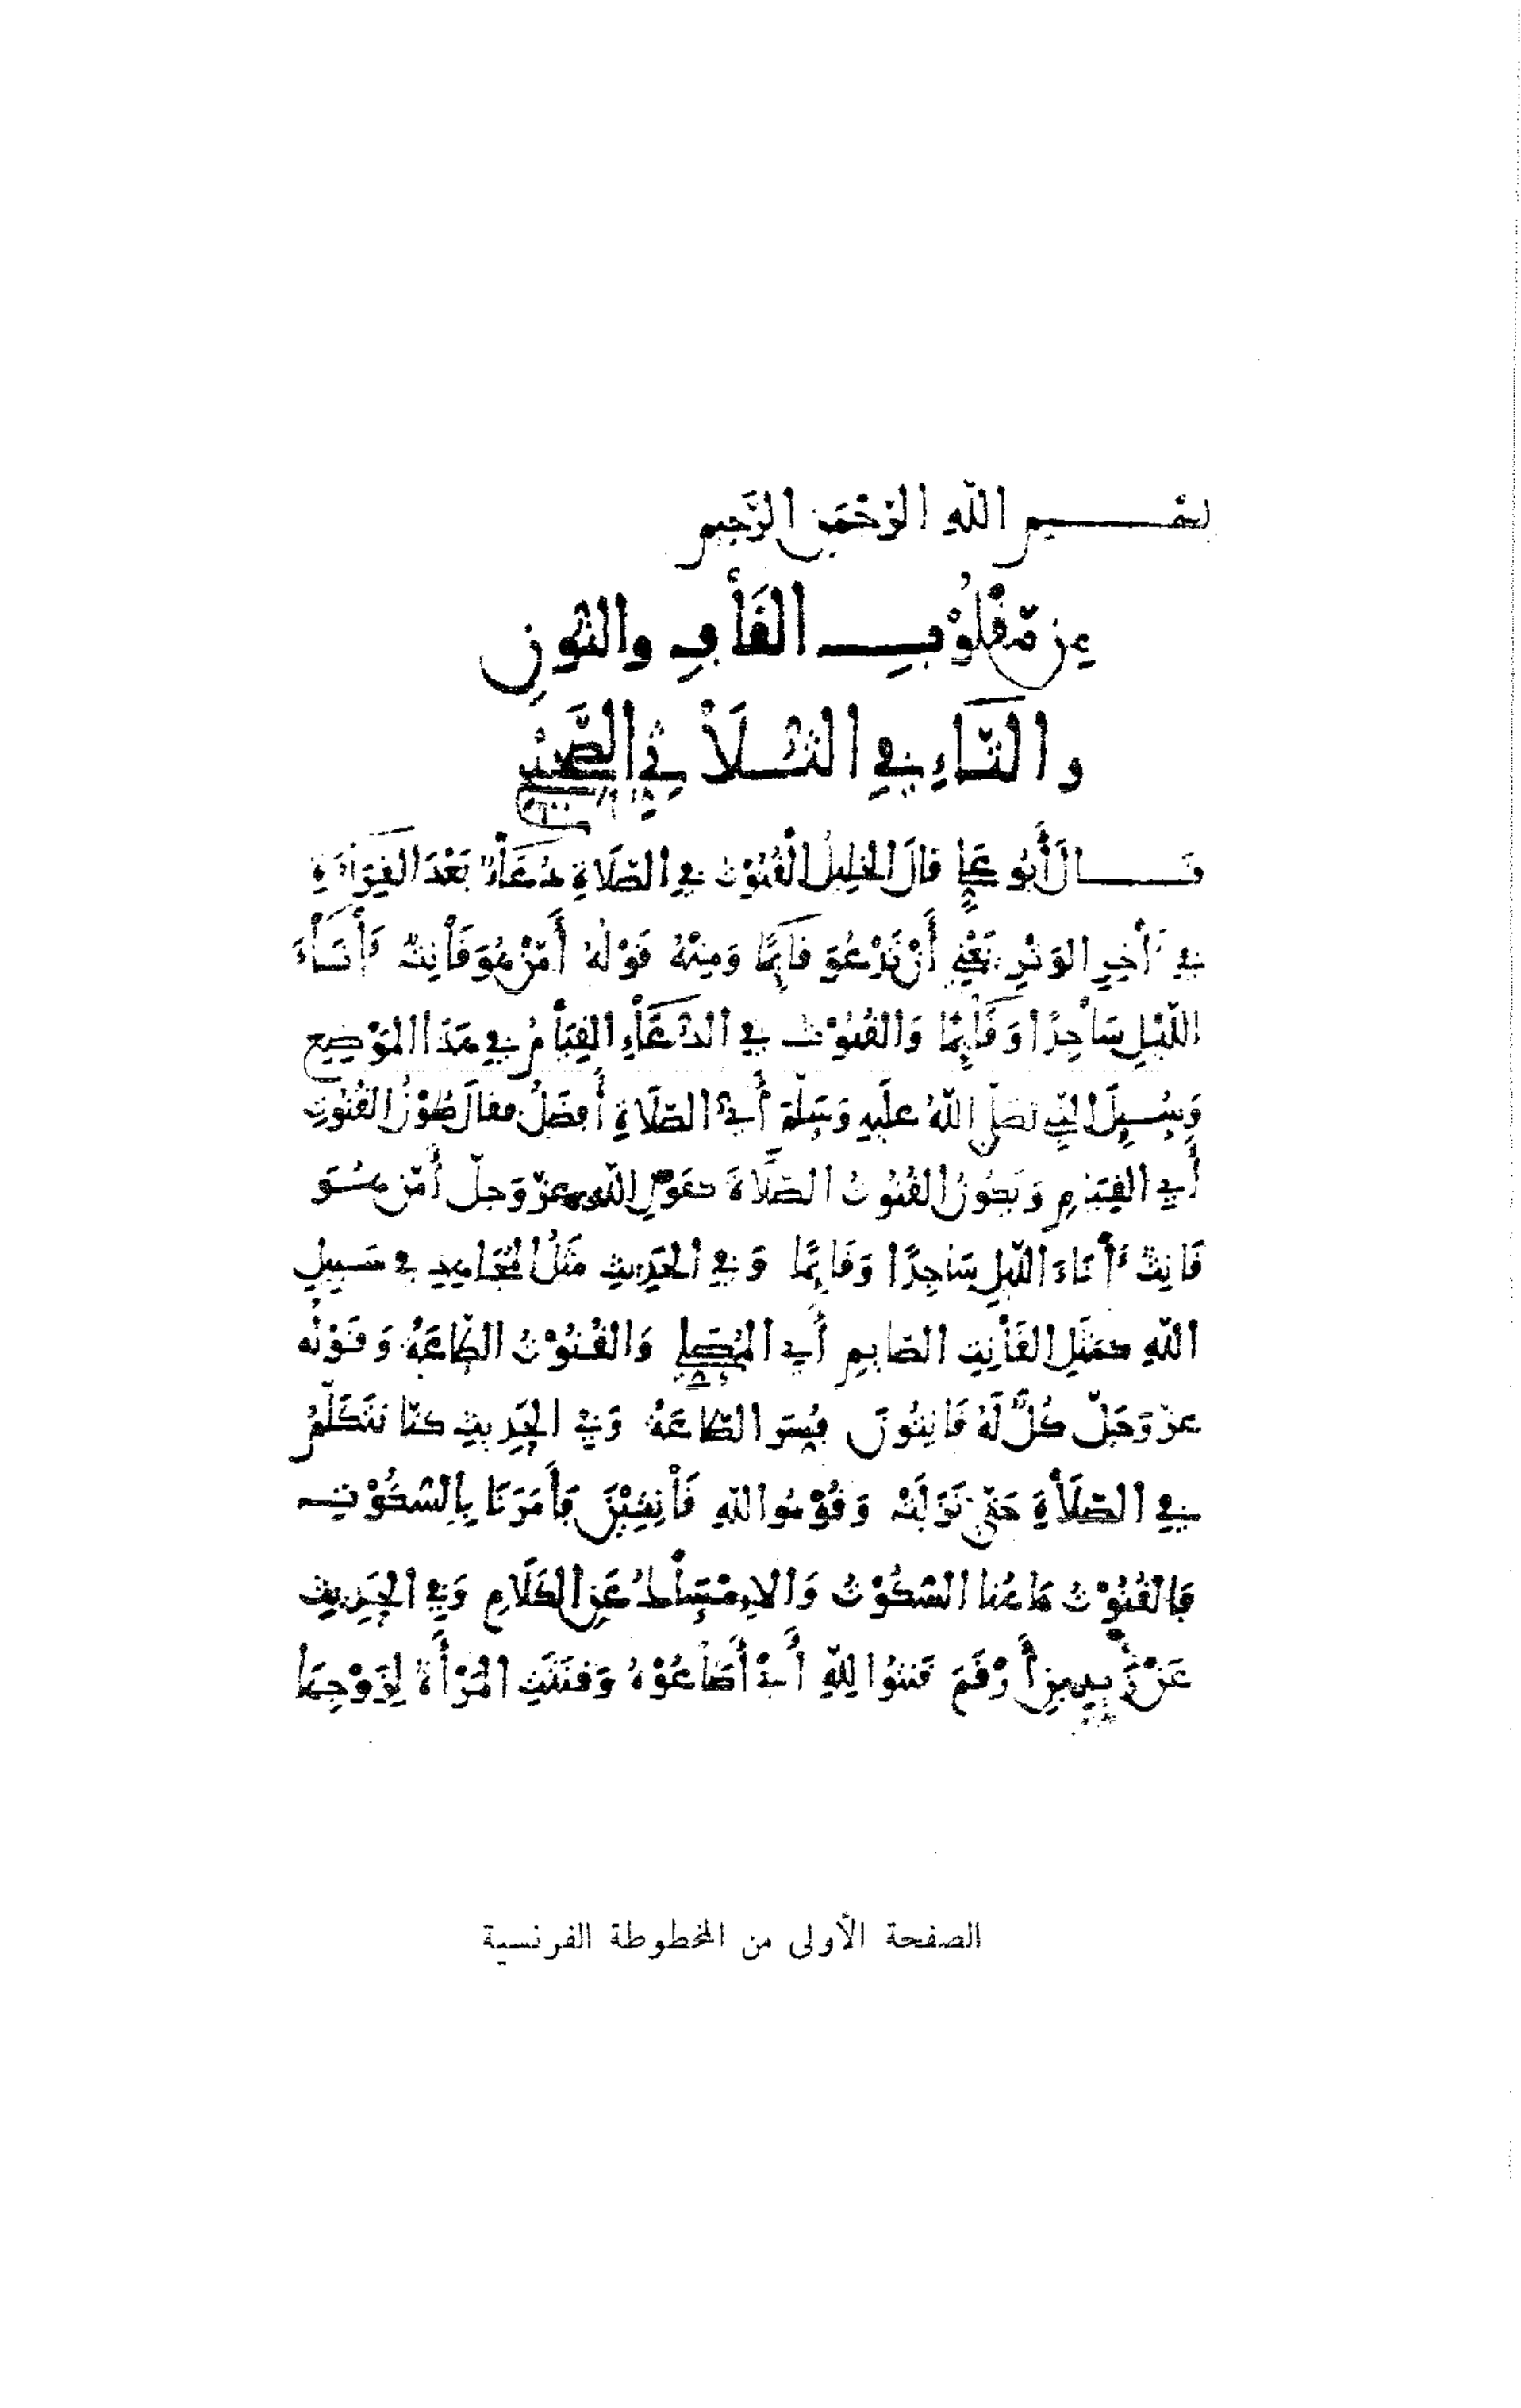 بسم الله الرحمن الرحيم
من مقلوب القاف والنون
والتاء في الثلاثي الصحيح
قال أبو علي قال الخليل القنوت في الصلاة دعاء بعد القراءة
في آخر الوتر يعني أن تدعو قائما ومنه قوله أمن هو قانت آناء
الليل ساجدا وقائما والقنوت في الدعاء القيام في هذا الموضع
وسئل النبي صلى الله عليه وسلم أي الصلاة أفضل فقال طول القنوت
أي القيام ويكون القنوت الصلاة كقول الله عز وجل أمن هو
قانت آناء الليل ساجدا وقائما وفي الحديث مثل المجاهد في سبيل
الله كمثل القانت الصائم أي المصلي والقنوت الطاعة وقوله
عز وجل كل له قانتون فسر الطاعة وفي الحديث كنا نتكلم
في الصلاة حتى نزلت وقوموا لله قانتين فأمرنا بالسكوت
فالقنوت هاهنا السكوت والإمساك عن الكلام وفي الحديث
عن زيد بن أرقم قنتوا لله أي أطاعوه وقنتت المرأة لزوجها
الصفحة الأولى من المخطوطة الفرنسية